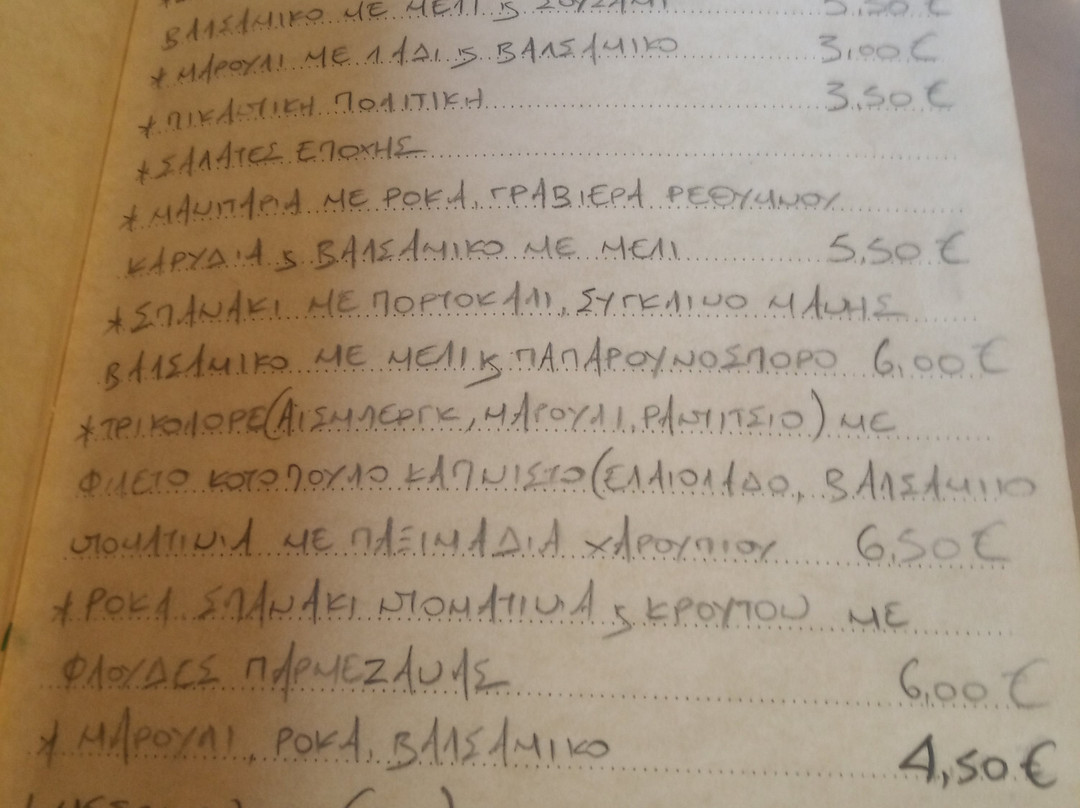 ΒΑΛΣΑΜΙΚΟ ΜΕ ΜΕΛΙ ϗ ΣΟΥΣΑΜΙ 5,50 €
*ΜΑΡΟΥΛΙ ΜΕ ΛΑΔΙ ϗ ΒΑΛΣΑΜΙΚΟ 3,00 €
*ΠΙΚΑΝΤΙΚΗ ΠΟΛΙΤΙΚΗ 3,50 €
*ΣΑΛΑΤΕΣ ΕΠΟΧΗΣ
*ΜΑΝΙΤΑΡΙΑ ΜΕ ΡΟΚΑ, ΓΡΑΒΙΕΡΑ ΡΕΘΥΜΝΟΥ
ΚΑΡΥΔΙΑ ϗ ΒΑΛΣΑΜΙΚΟ ΜΕ ΜΕΛΙ 5,50 €
*ΣΠΑΝΑΚΙ ΜΕ ΠΟΡΤΟΚΑΛΙ, ΣΥΓΚΛΙΝΟ ΜΑΝΗΣ
ΒΑΛΣΑΜΙΚΟ ΜΕ ΜΕΛΙ ϗ ΠΑΠΑΡΟΥΝΟΣΠΟΡΟ 6,00 €
*ΤΡΙΚΟΛΟΡΕ(ΑΙΣΜΠΕΡΓΚ, ΜΑΡΟΥΛΙ, ΡΑΝΤΙΤΣΙΟ) ΜΕ
ΦΙΛΕΤΟ ΚΟΤΟΠΟΥΛΟ ΚΑΠΝΙΣΤΟ(ΕΛΑΙΟΛΑΔΟ, ΒΑΛΣΑΜΙΚΟ
ΝΤΟΜΑΤΙΝΙΑ ΜΕ ΠΑΞΙΜΑΔΙΑ ΧΑΡΟΥΠΙΟΥ 6,50 €
*ΡΟΚΑ ΣΠΑΝΑΚΙ ΝΤΟΜΑΤΙΝΙΑ ϗ ΚΡΟΥΤΟΝ ΜΕ
ΦΛΟΥΔΕΣ ΠΑΡΜΕΖΑΝΑΣ 6,00 €
*ΜΑΡΟΥΛΙ, ΡΟΚΑ, ΒΑΛΣΑΜΙΚΟ 4,50 €